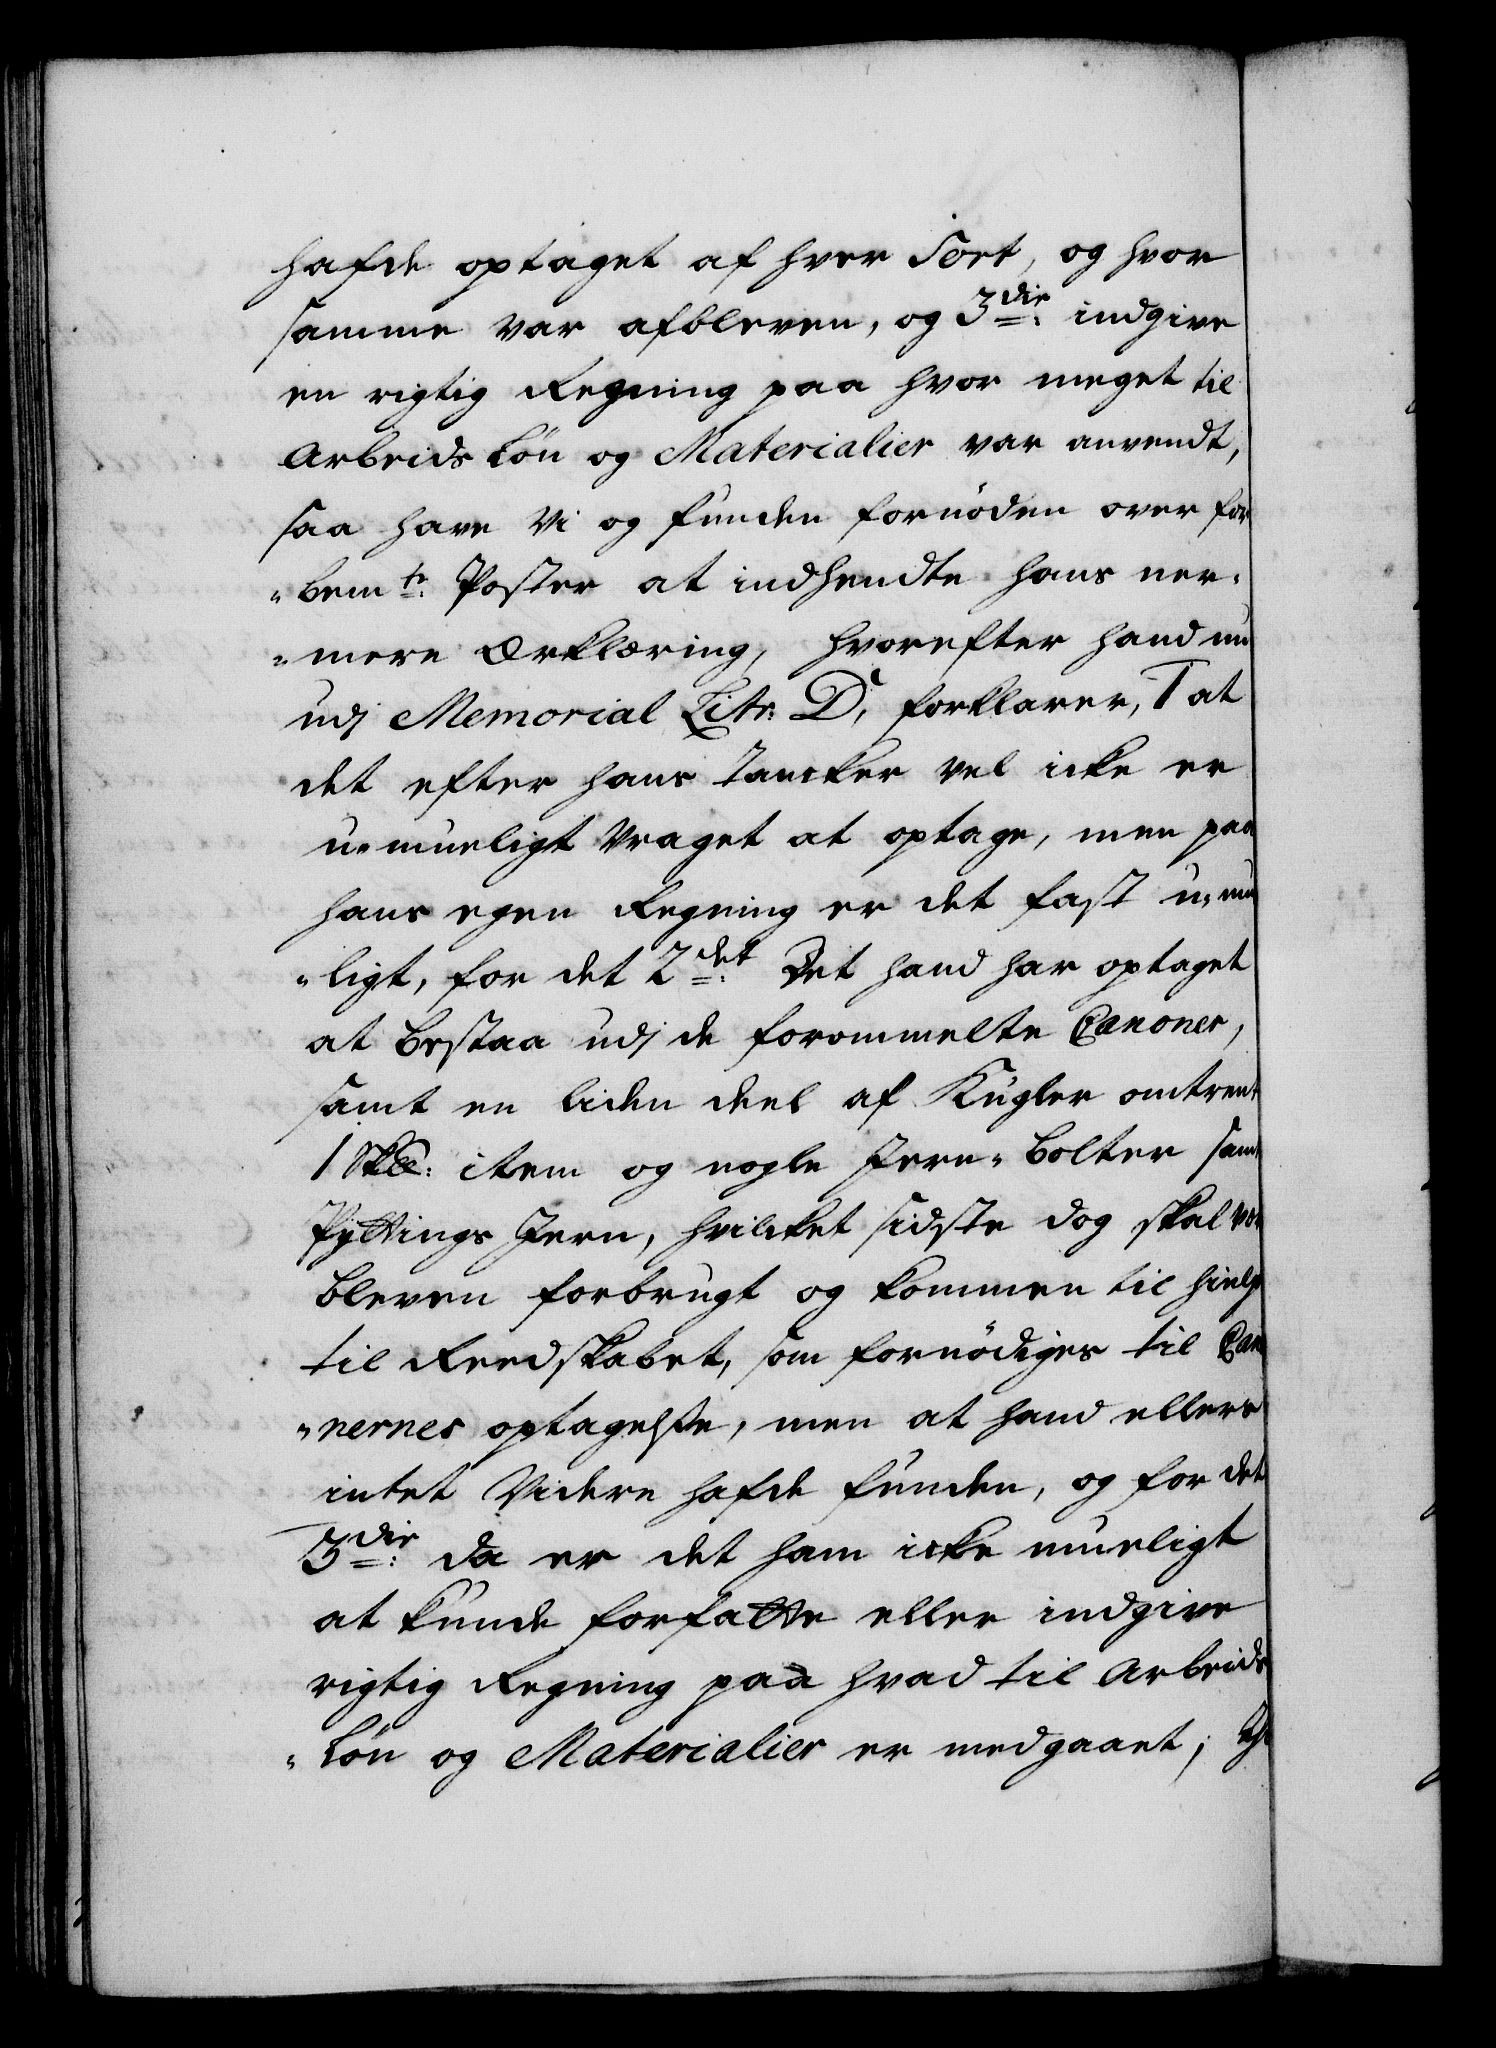 hafde optaget af hver Sort, og hvor
samme var afbleven, og 3die: indgive
en rigtig Regning paa hvor meget til
Arbeids Løn og Materialier var anvendt,
saa have Vi og funden fornöden over for
„bemte: Poster at indhendte hans ner„
„mere Erklæring, hvorefter hand nu
udj Memorial Litr: D, forklarer, 1 at
det efter hans Tancker vel icke er
u„mueligt Vraget at optage, men paa
hans egen Regning er det fast u„mu
„ligt, for det 2det: Det hand har optaget
at bestaa udj de forommelte Canoner,
samt en liden deel af Kugler omtrent
1 Sk℔: item og nogle Jern„bolter samt
Pyttings Jern, hvilcket sidste dog skal være
bleven forbrugt og kommen til hielp
til Reedskabet, som fornödiges til Cano
„nernes optagelse, men at hand ellers
intet Videre hafde funden, og for det
3die: da er det ham icke mueligt
at kunde forfatte eller indgive
rigtig Regning paa hvad til Arbeids
„Løn og Materialier er medgaaet; Thi